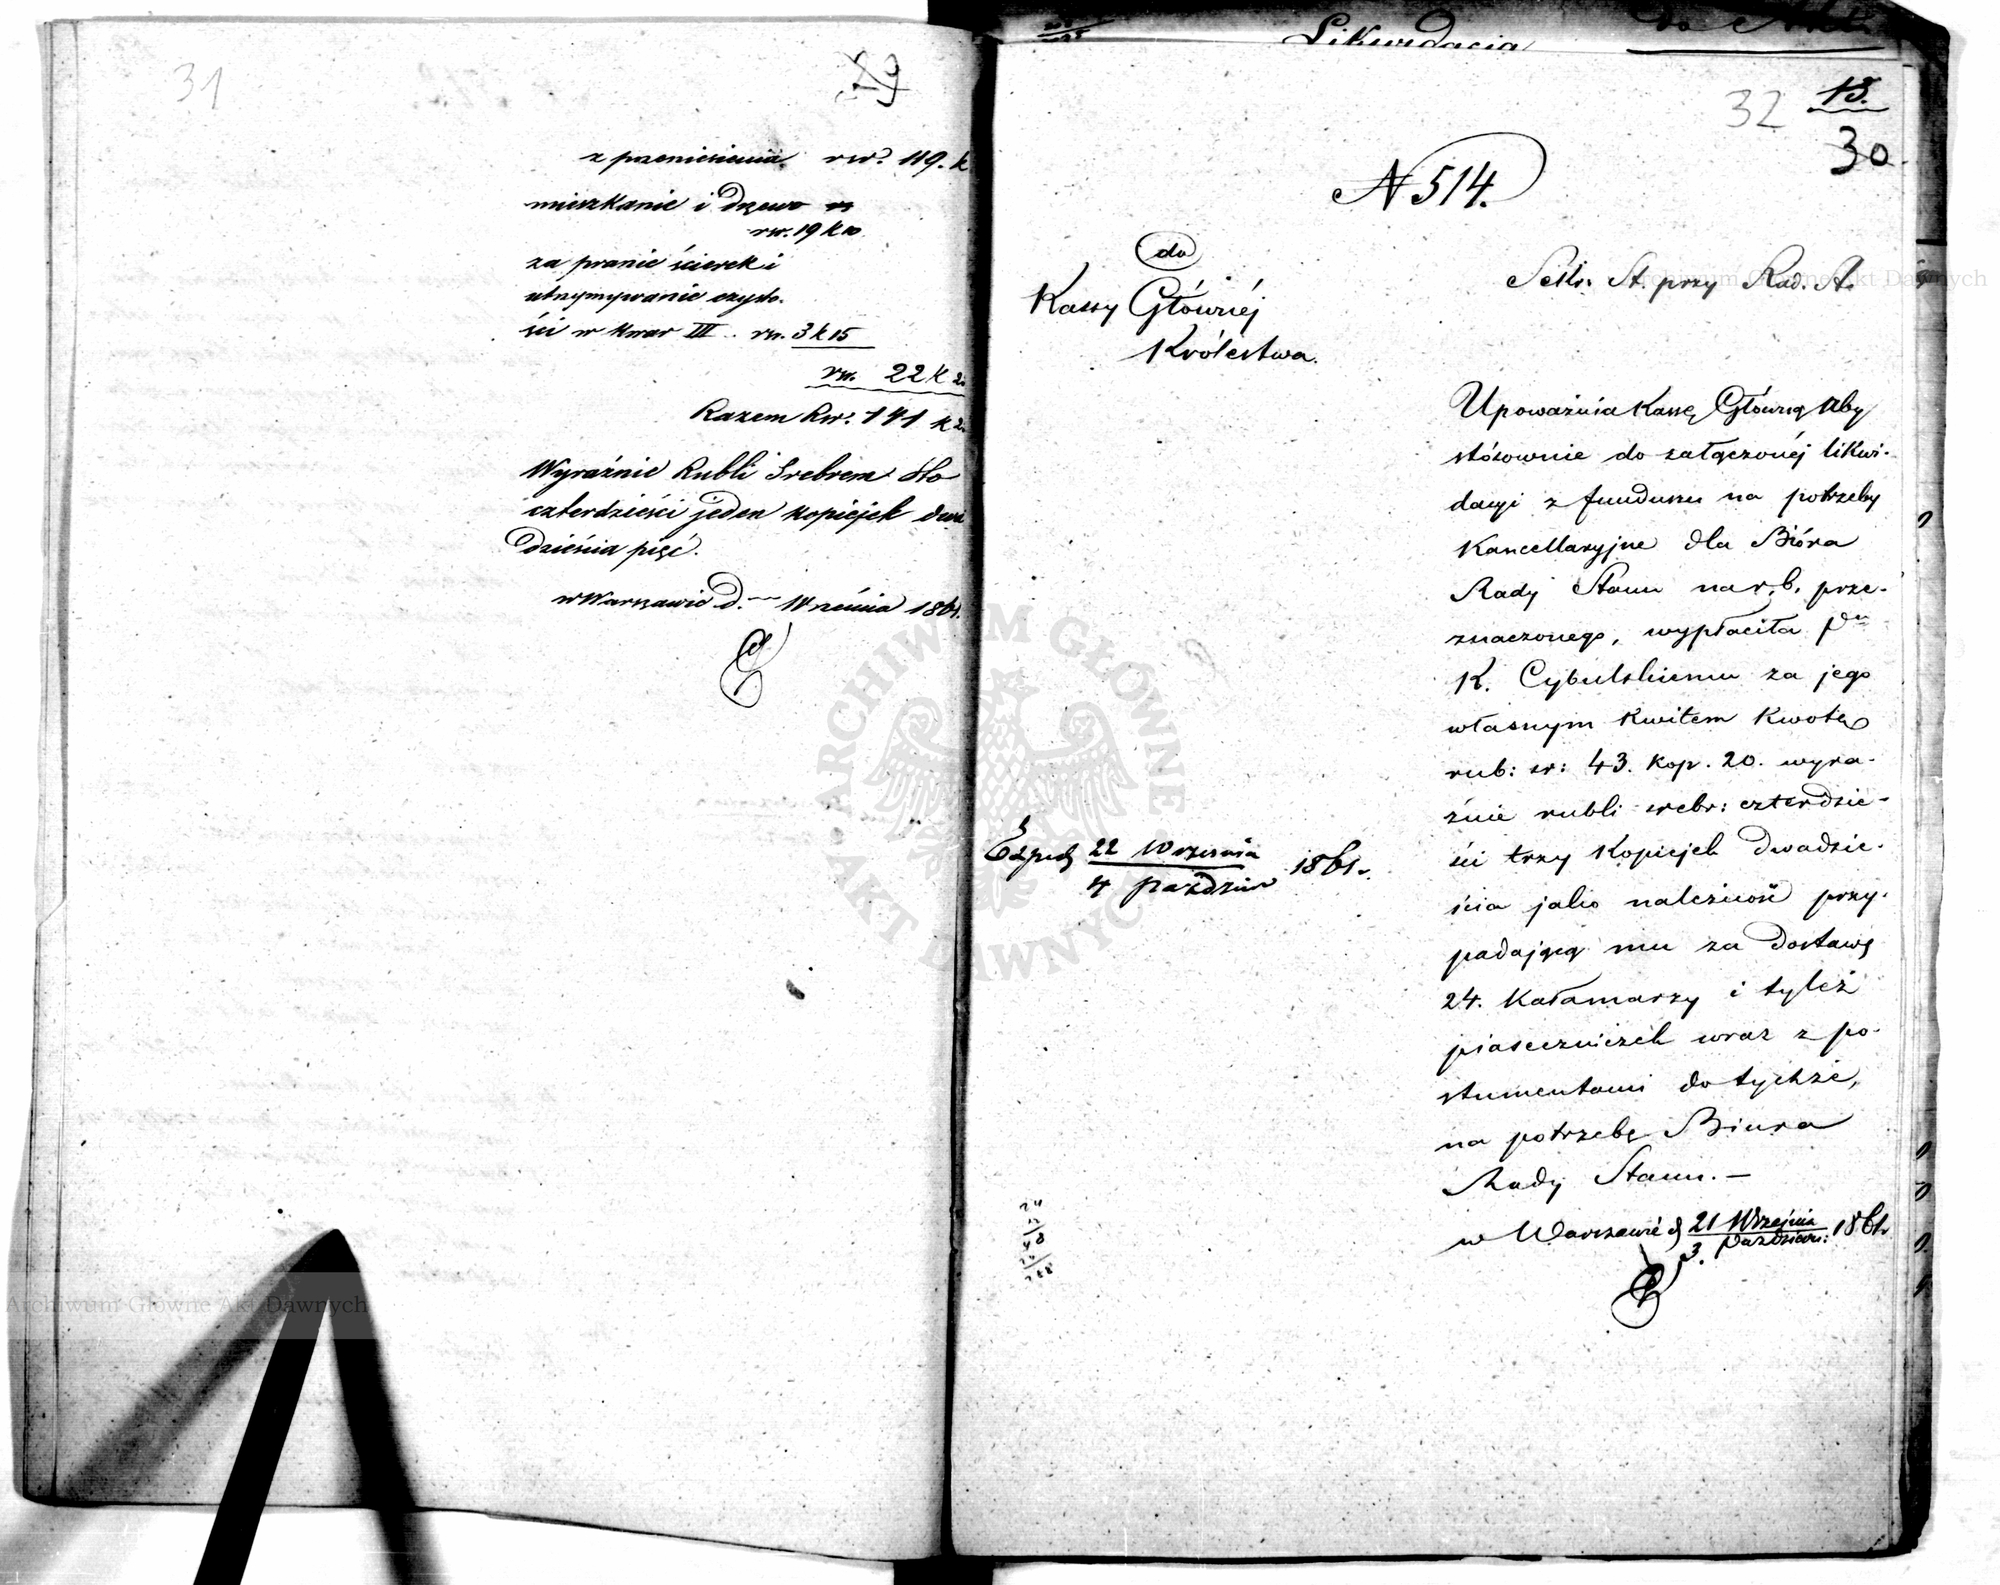 31
29
z przeniesienia rsr. 119. k
mieszkanie i drzewo
rsr. 19 k 10
za pranie ścierek i
utrzymywanie czysto-
ści w kwar III rsr. 3 k 15
rsr. 22 k 2
Razem Rsr. 141 k 2
Wyraźnie Rubli Srebrem Sto
czterdzieści jeden kopiejek dwa
dzieścia pięć.
w Warszawie d. Września 1861.
Likwidacja
do Akt
32
13.
30
N 514.
do
Kassy Głównéj
Królestwa.
Sekr. St. przy Rad. St.
Upoważnia Kassę Główną aby
stósownie do załączonéj likwi-
dacyi z funduszu na potrzeby
Kancellaryjne dla Bióra
Rady Stanu na r. b. prze-
znaczonego, wypłaciła Pnu
K. Cybulskiemu za jego
własnym kwitem kwotę
rub: sr: 43. kop. 20. wyra-
źnie rubli srebr: czterdzie-
ści trzy kopiejek dwadzie-
ścia jako należność przy-
padającą mu za dostawę
24. Kałamarzy i tyleż
piaseczniczek wraz z po-
stumentami do tychże,
na potrzebę Biura
Rady Stanu. —
w Warszawie d 21 Września
3. Paździer: 1861
Exped 22 Września
4 Paździer 1861 r.
ARCHIWUM GŁÓWNE AKT DAWNYCH
Archiwum Główne Akt Dawnych
Archiwum Główne Akt Dawnych